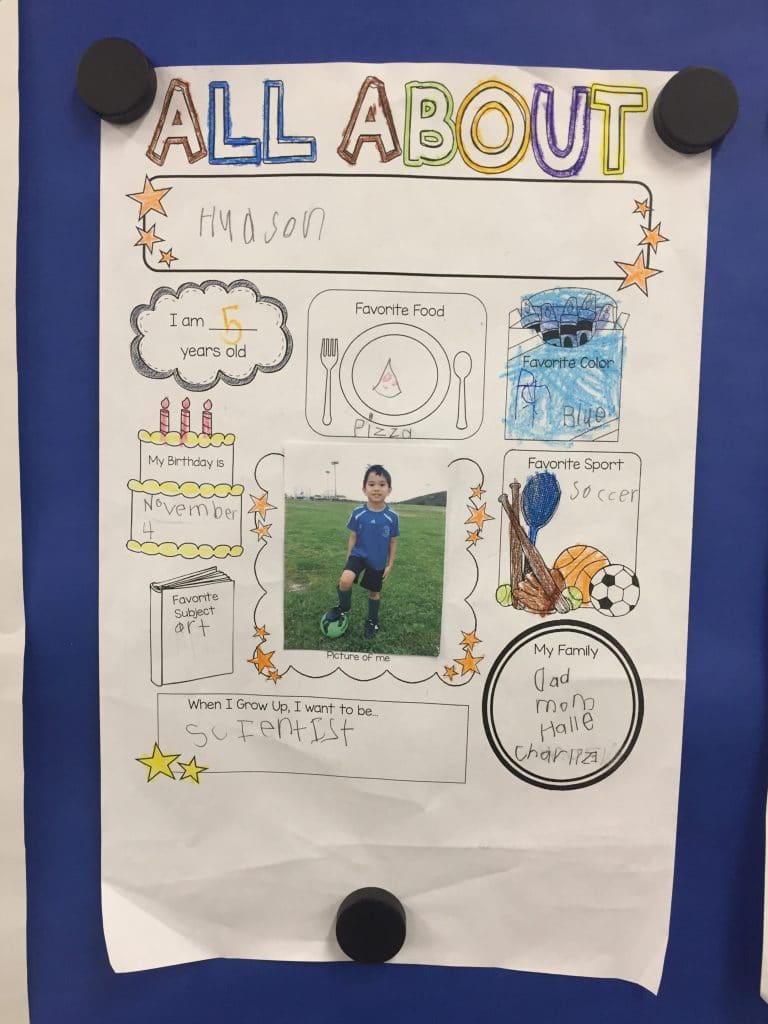 ALL ABOUT
Hudson
I am 5
years old
Favorite Food
Pizza
Favorite Color
Blue
My Birthday is
November
4
Favorite Sport
Soccer
Favorite
Subject
art
Picture of me
My Family
Dad
mom
Halle
When I Grow Up, I want to be...
scIentIst